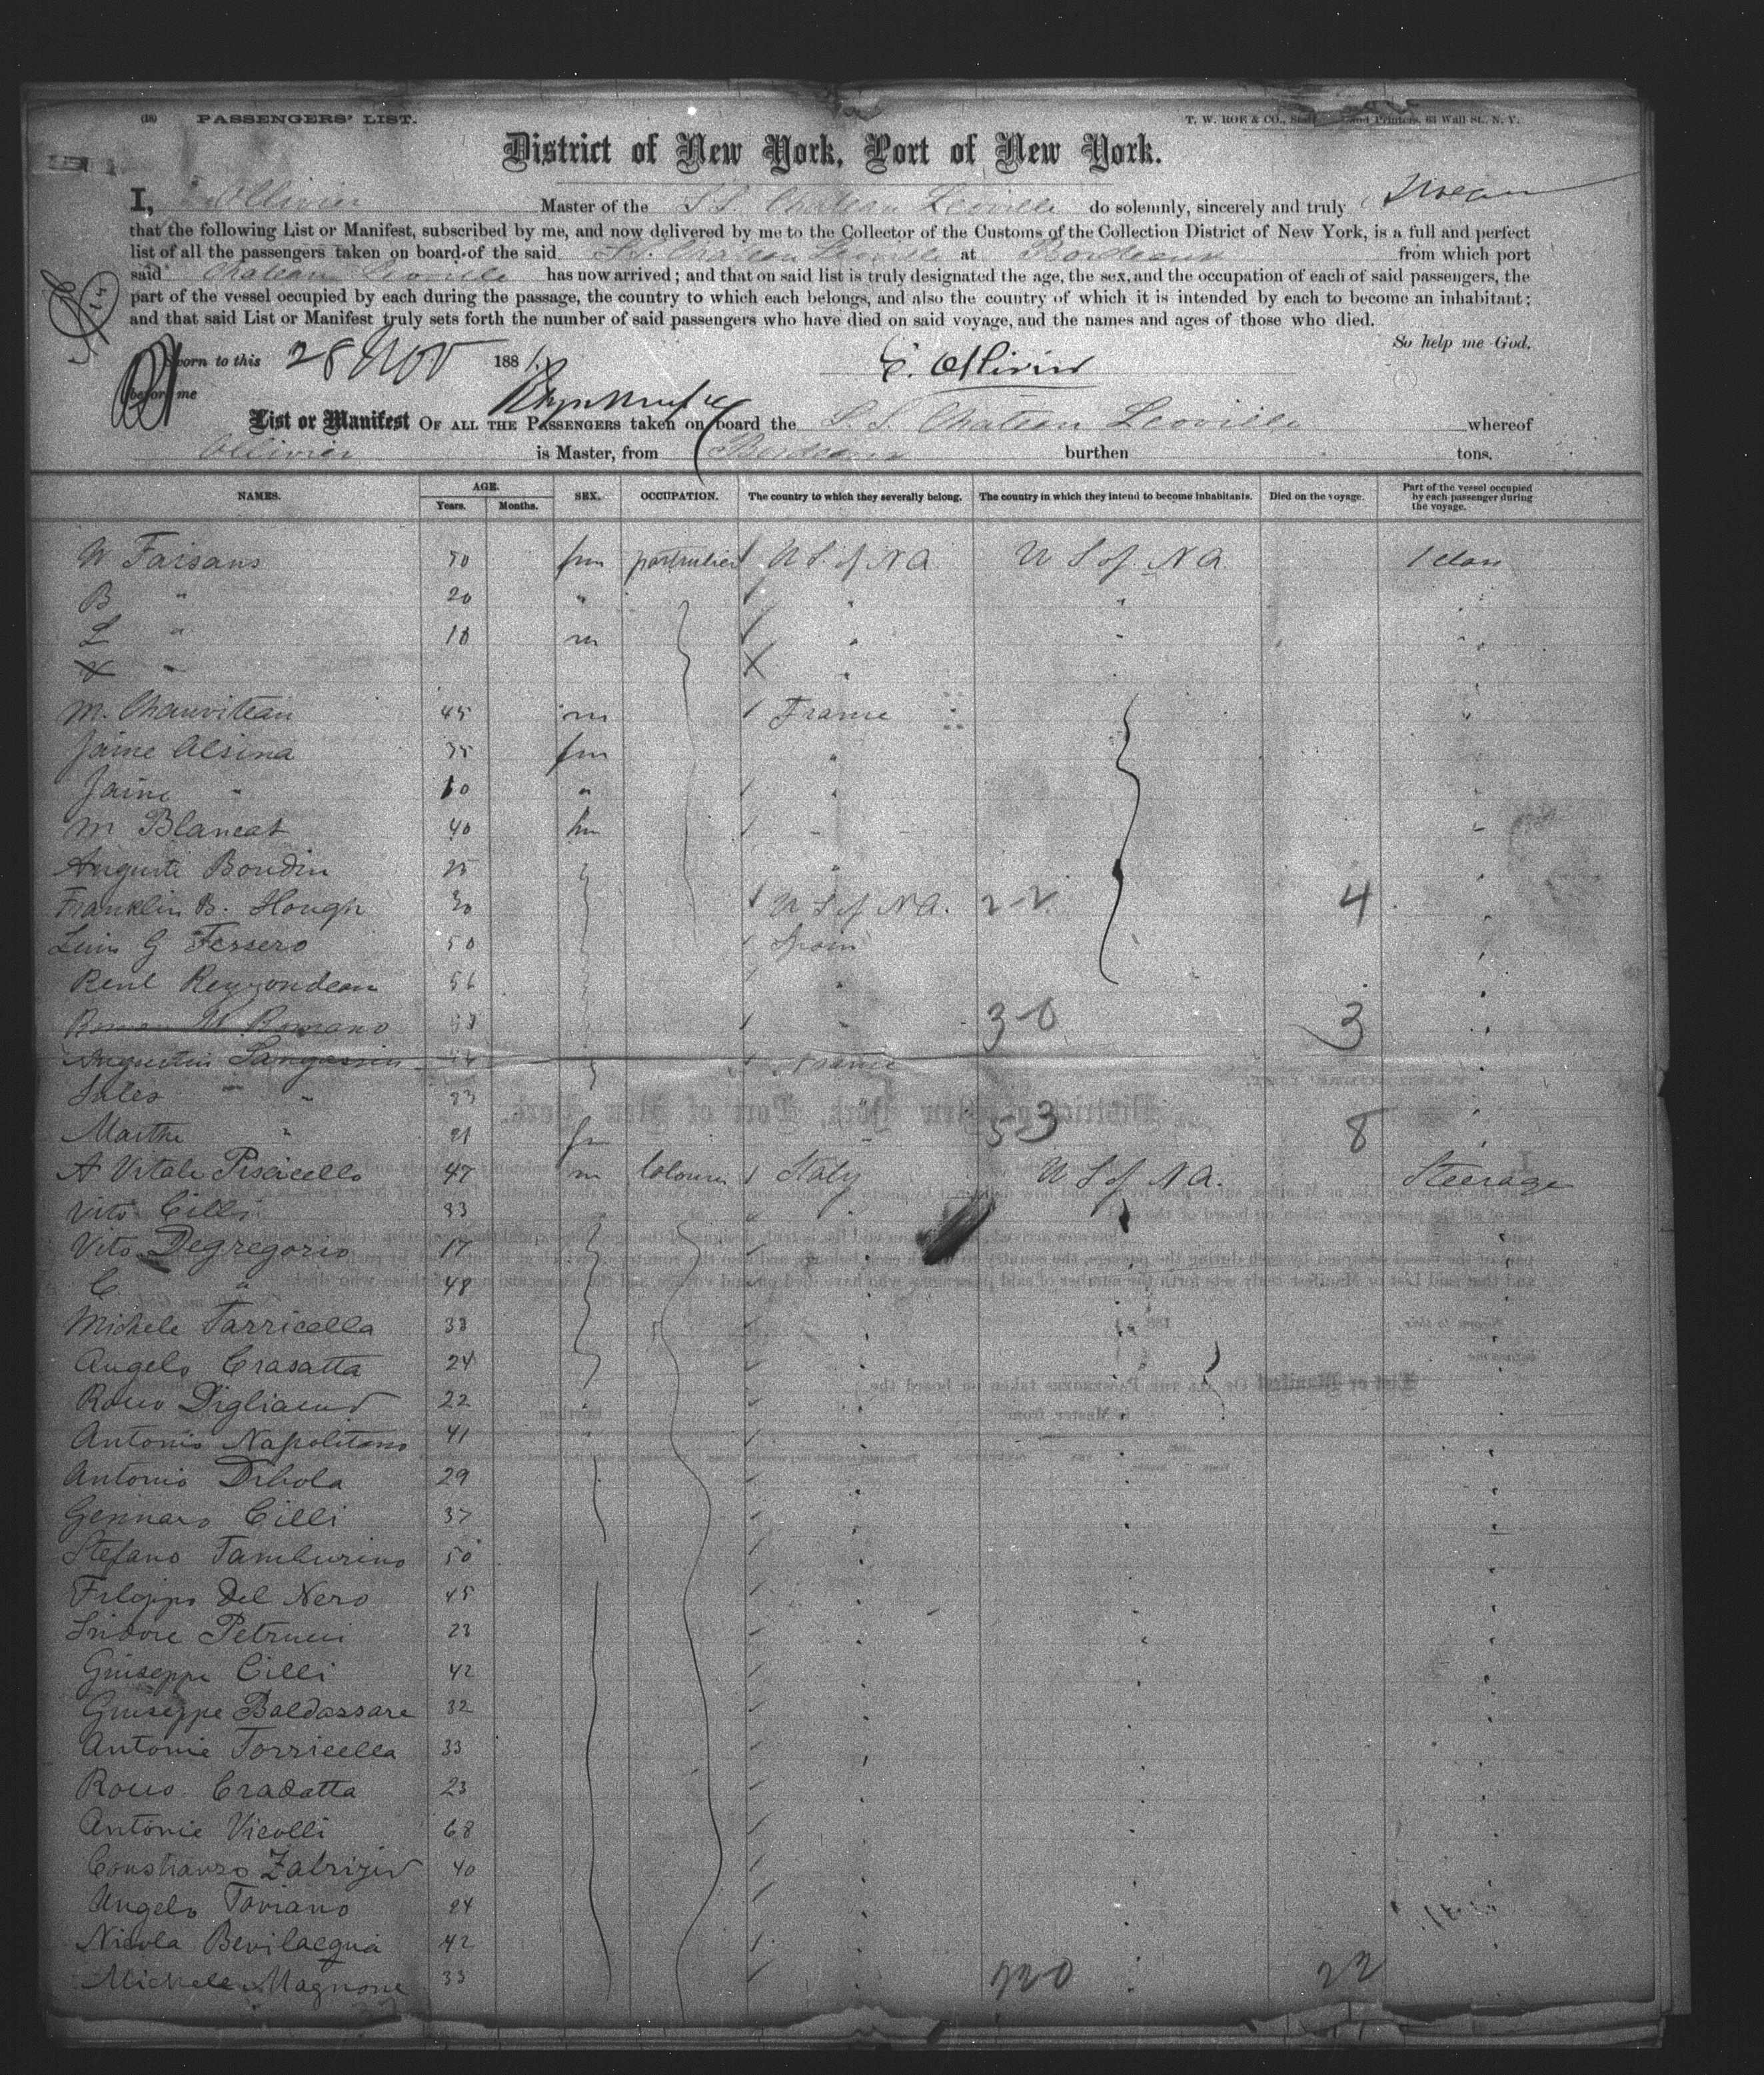 (18) PASSENGERS' LIST.
T. W. ROE & CO., Printers, 63 Wall St., N. Y.
District of New York, Port of New York.
I, E. Ollivier Master of the S.S. Chateau Leoville do solemnly, sincerely and truly swear
that the following List or Manifest, subscribed by me, and now delivered by me to the Collector of the Customs of the Collection District of New York, is a full and perfect
list of all the passengers taken on board of the said S.S. Chateau Leoville at Bordeaux from which port
said Chateau Leoville has now arrived; and that on said list is truly designated the age, the sex, and the occupation of each of said passengers, the
part of the vessel occupied by each during the passage, the country to which each belongs, and also the country of which it is intended by each to become an inhabitant;
and that said List or Manifest truly sets forth the number of said passengers who have died on said voyage, and the names and ages of those who died.
So help me God.
Sworn to this 28 Nov 188
E. Ollivier
before me
List or Manifest OF ALL THE PASSENGERS taken on board the S.S. Chateau Leoville whereof
Ollivier is Master, from Bordeaux burthen tons.
NAMES. AGE. Years. Months. SEX. OCCUPATION. The country to which they severally belong. The country in which they intend to become inhabitants. Died on the voyage. Part of the vessel occupied by each passenger during the voyage.
Faisans 50 fm particulier U S of N A U S of N A 1 class
B " 20 " " "
L " 18 m " "
X " X "
M. Chauviteau 45 m France
Jaime Alsina 35 fm "
Jaime " 10 " "
M Blancat 40 hm "
Auguste Boudin 25 "
Franklin B. Hough 30 U S of N A. 22 4
Luis G Fessero 50 Spain
René Reymondeau 56 "
Romano " 30 3
Augustin France
Jules " " 33 "
Marthe " 21 fm " 53 8
A Vitale Piscicello 47 m Colours Italy U S of N A. Steerage
Vito Cilli 33 "
Vito Degregorio 17 "
C " 48
Michele Tarricella 38
Angelo Crasatta 24
Rocco 22
Antonio Napolitano 41
Antonio Dibola 29
Gennaro Cilli 37
Stefano Tamburino 50
Filippo Del Nero 45
Isidore Petrucci 23
Giuseppe Cilli 42
Giuseppe Baldassare 32
Antonie Torricella 33
Rocco Cradatta 23
Antonie Vicolli 68
Constranzo 40
Angelo Toviano 24
Nicola Bevilacqua 42
Michele Magnone 33 220 22